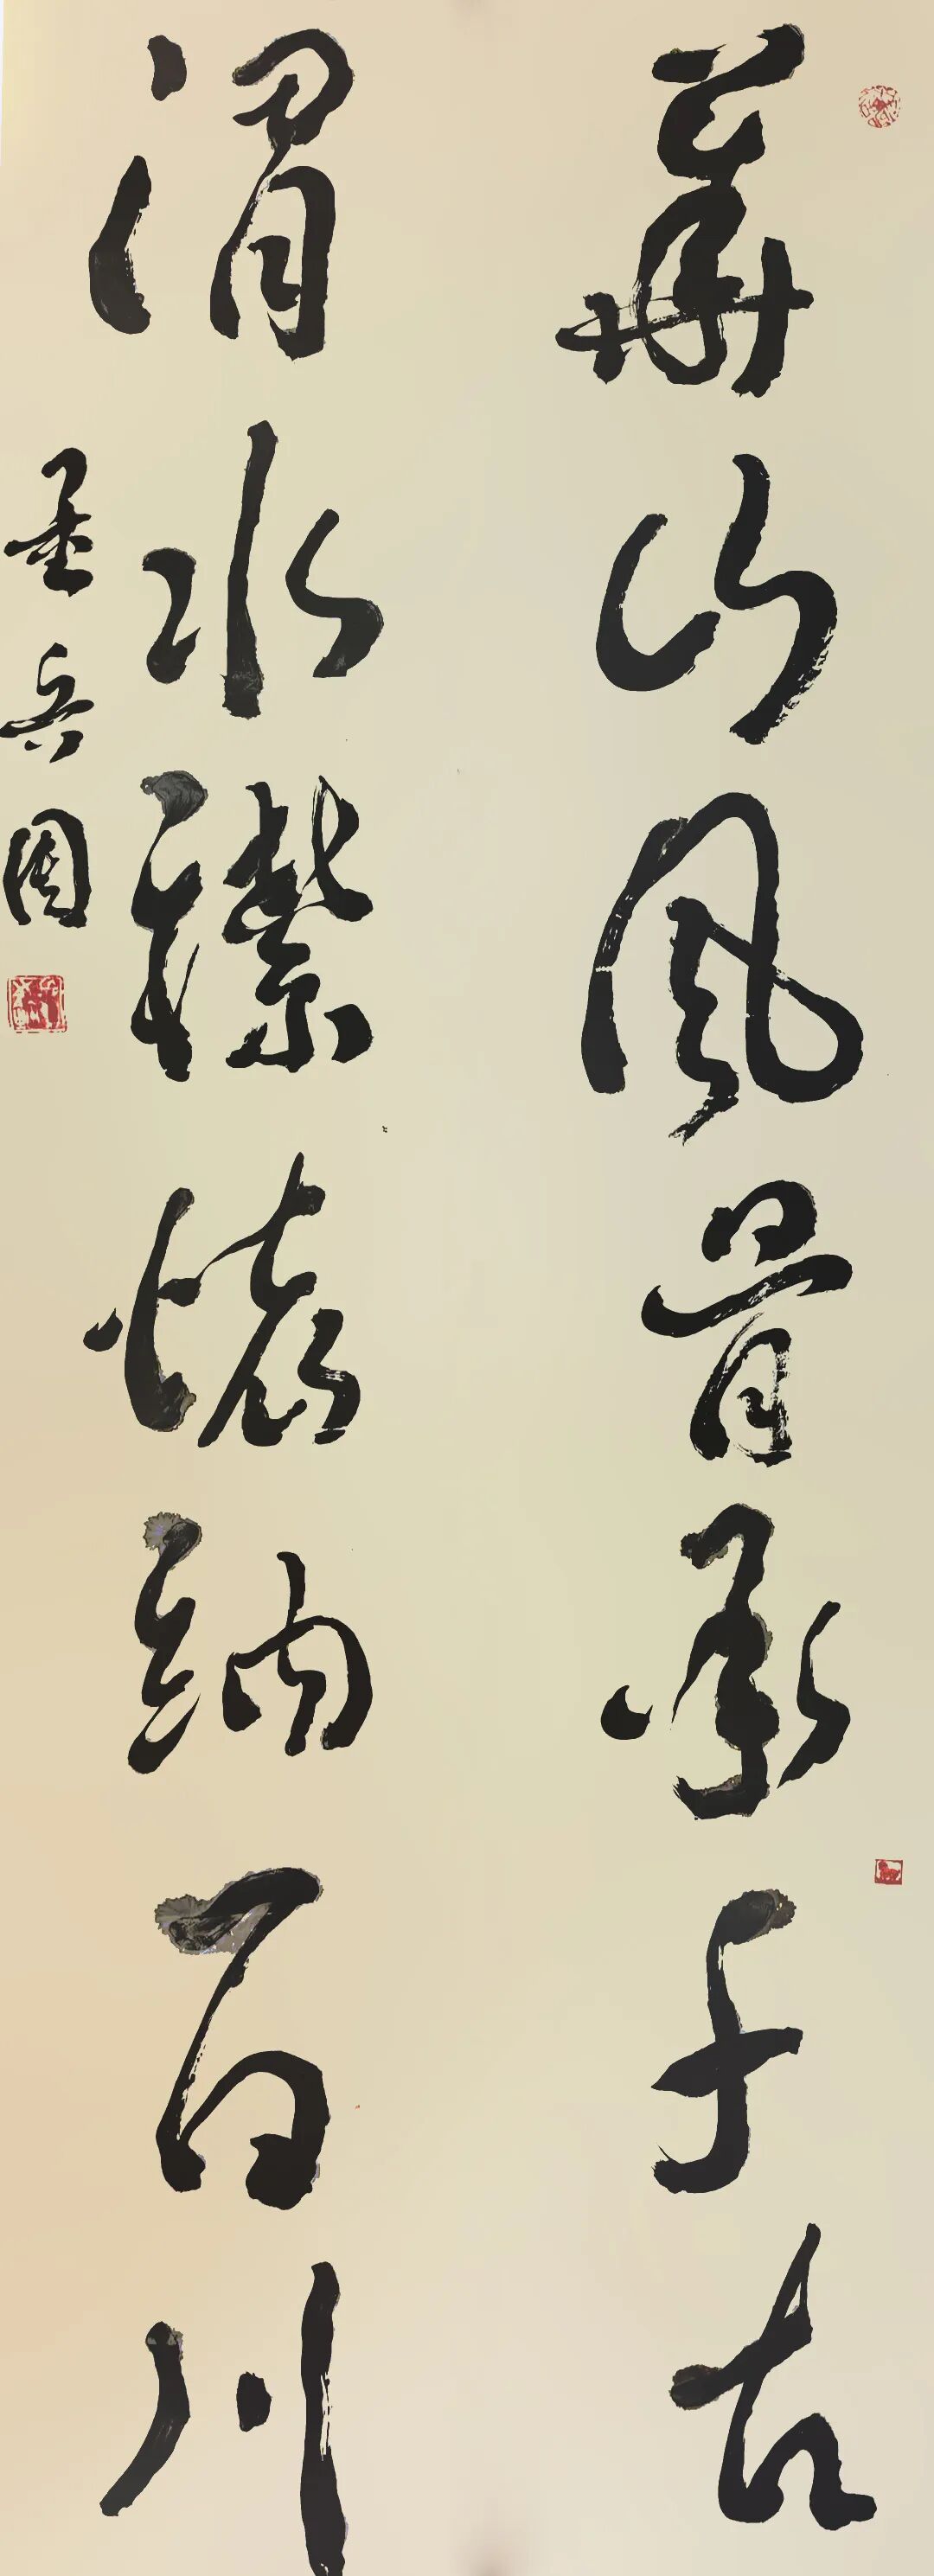 華山風骨承千古
渭水襟懷納百川
孟兵周